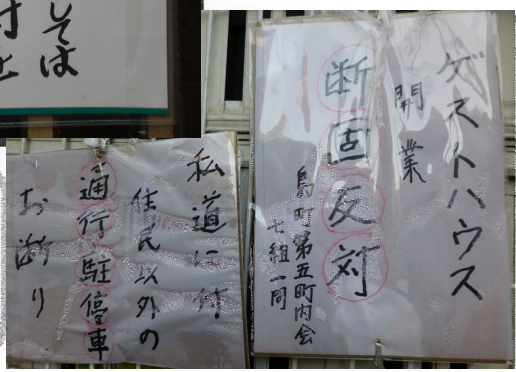 しては
ゲストハウス
開業
断固反対
島町第五町内会
七組一同
私道に付
住民以外の
通行・駐停車
お断り